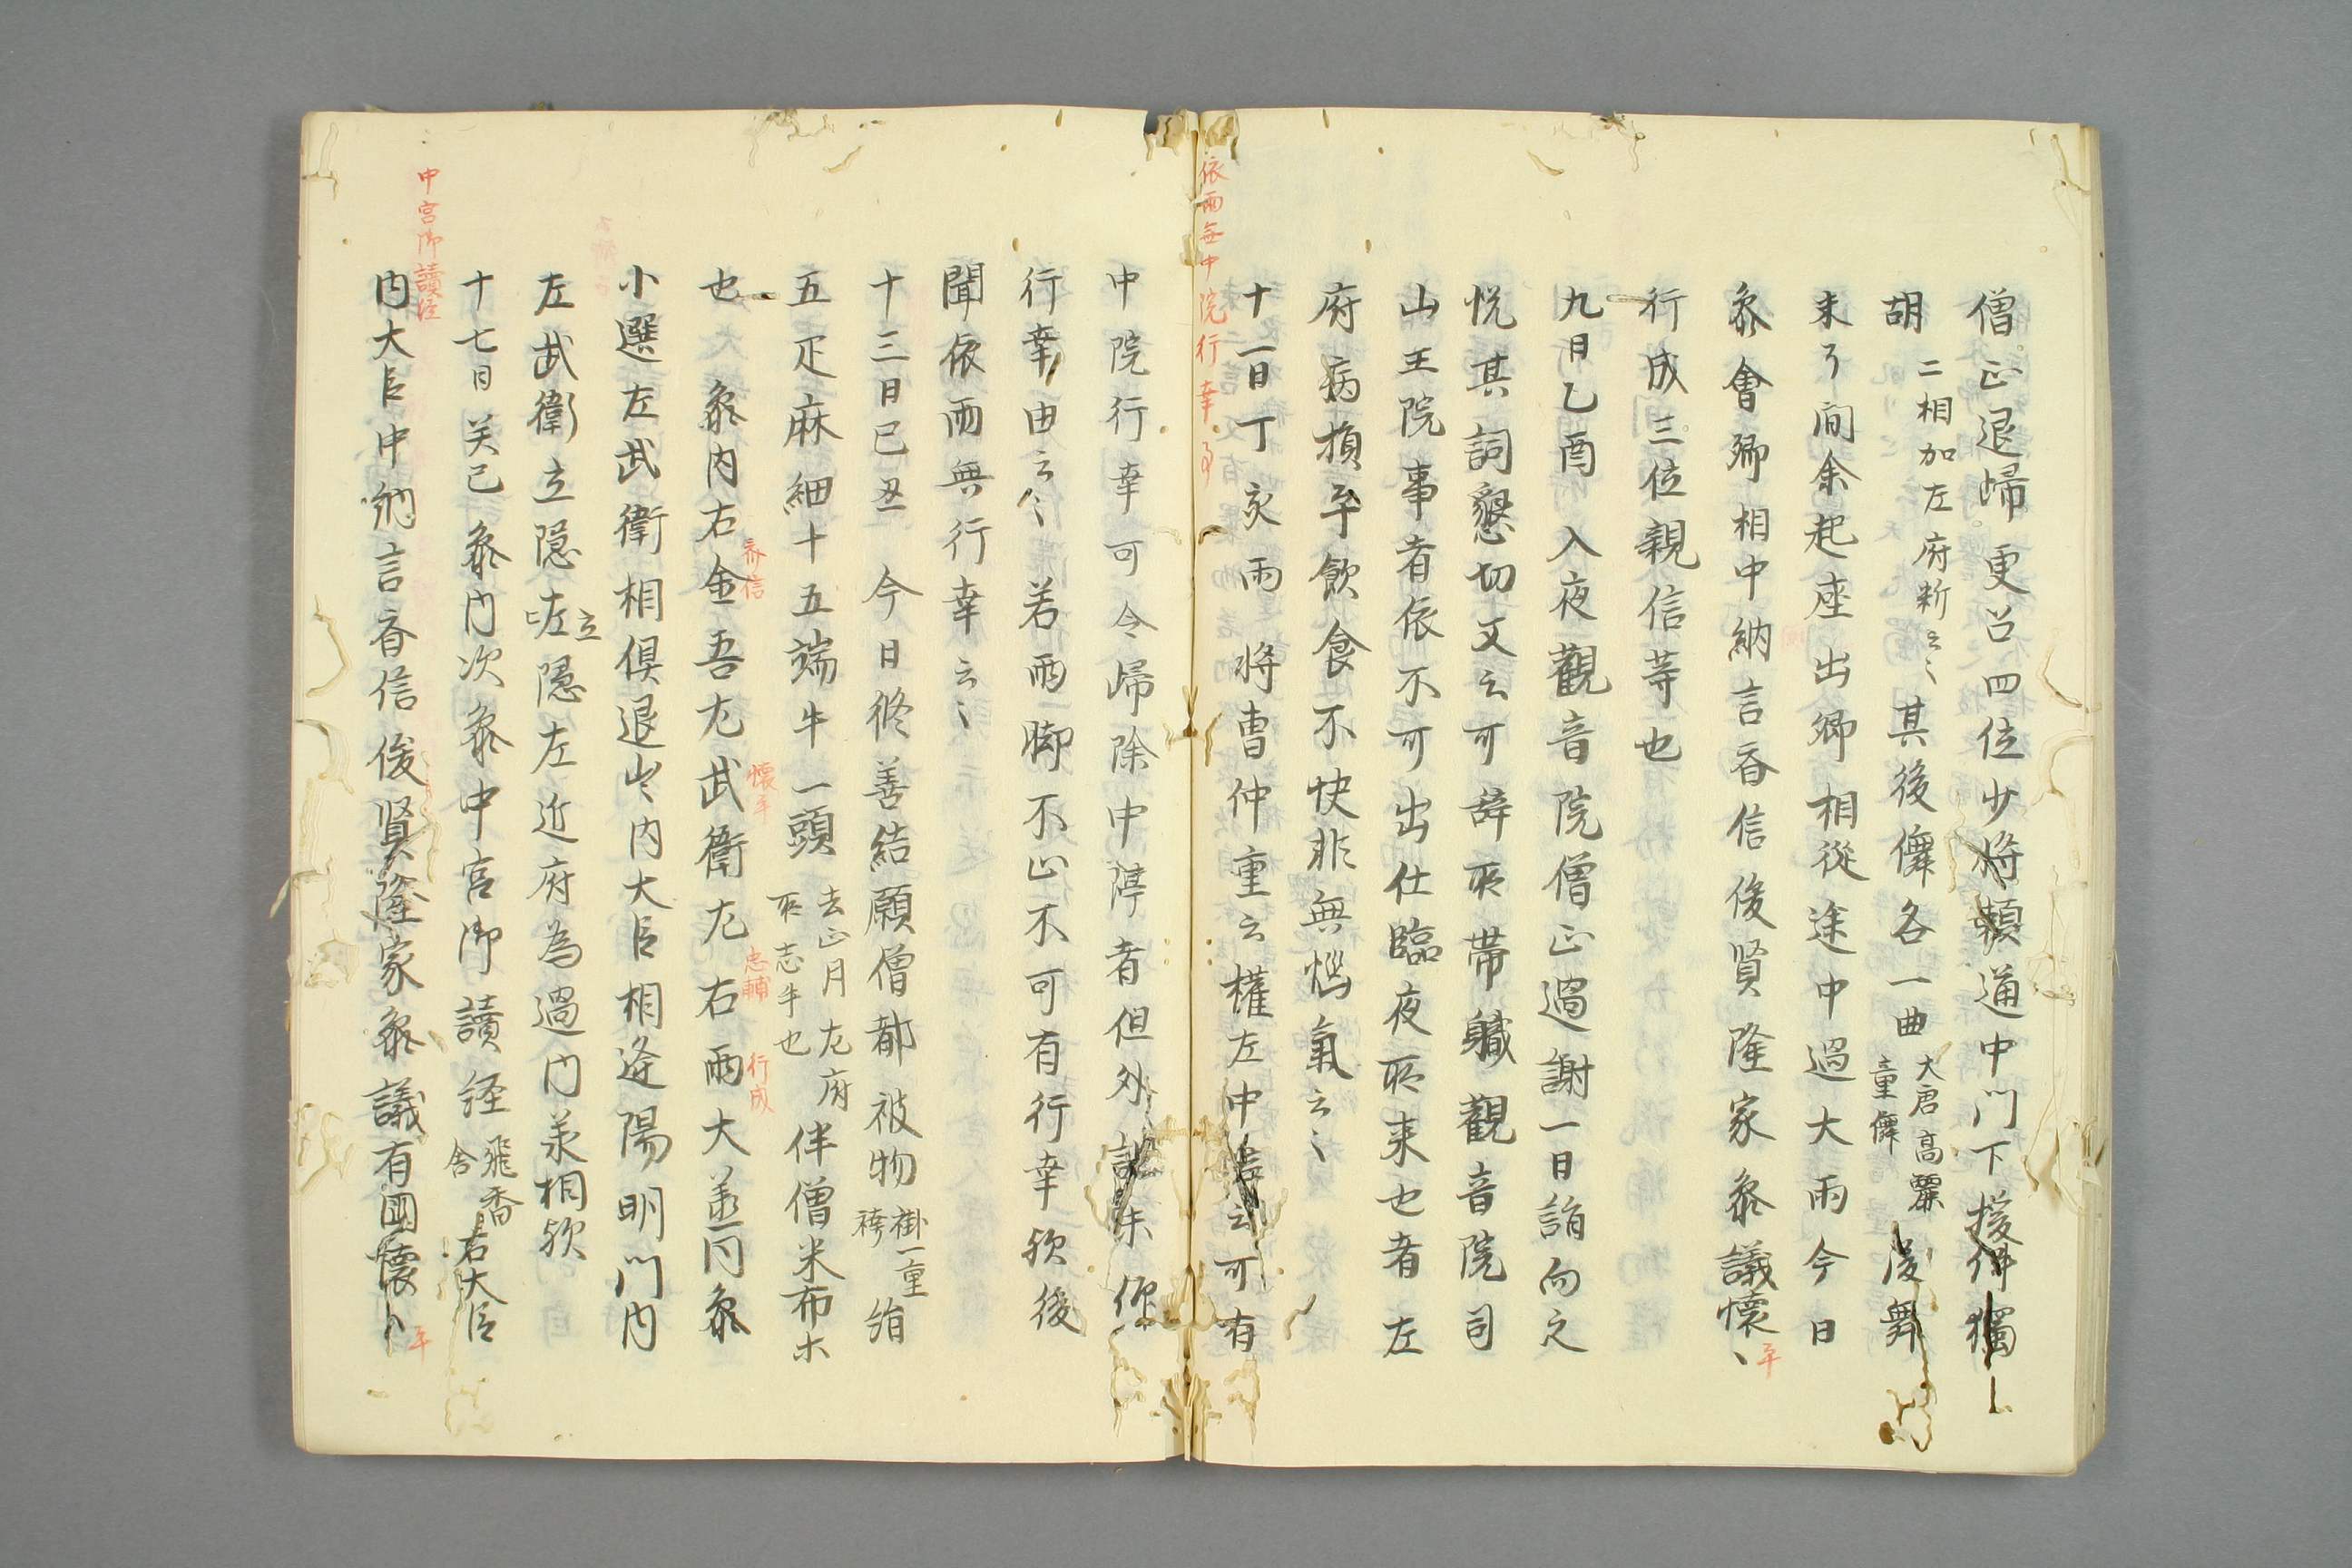 僧正退歸更召四位少將頼通中門下援伴獨
胡二相加左府断云々其後儛各一曲大唐高麗童儛後舞
未了間余起座出卿相從途中過大雨今日
参會卿相中納言斉信俊賢隆家参議懐〻平
行成三位親信等也
九日乙酉入夜觀音院僧正過謝一日詣向之
悦其詞懇切又云可辞所帯軄觀音院司
山王院事者依不可出仕臨夜所来也者左
府病損平飲食不快非無惱氣云〻
依雨無中院行幸事
十一日丁亥雨將曹仲重云權左中云可有
中院行幸可令歸除中停者但外記未仰
行幸由云々若雨脚不止不可有行幸欤後
聞依雨無行幸云〻
十三日己丑今日修善結願僧都被物褂一重袴絹
五疋麻細十五端牛一頭去正月左府所志牛也伴僧米布木
也参内右金吾斉信左武衛懐平左右忠輔兩大弁行成同参
小選左武衛相倶退出内大臣相逢陽明門内
左武衛立隠左立隠左近府為過門前相欤
十七日癸巳参内次参中宮御讀経飛香舎右大臣
中宮御讀経
内大臣中納言斉信俊賢隆家参議有國懐〻平